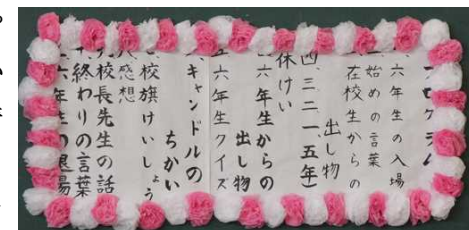 六年生の入場
始めの言葉
在校生からの
出し物
四、三、二、一、五年)
休けい
六年生からの
出し物
六年生クイズ
キャンドルの
ちかい
校旗けいしょう
感想
校長先生の話
終わりの言葉
六年生の退場